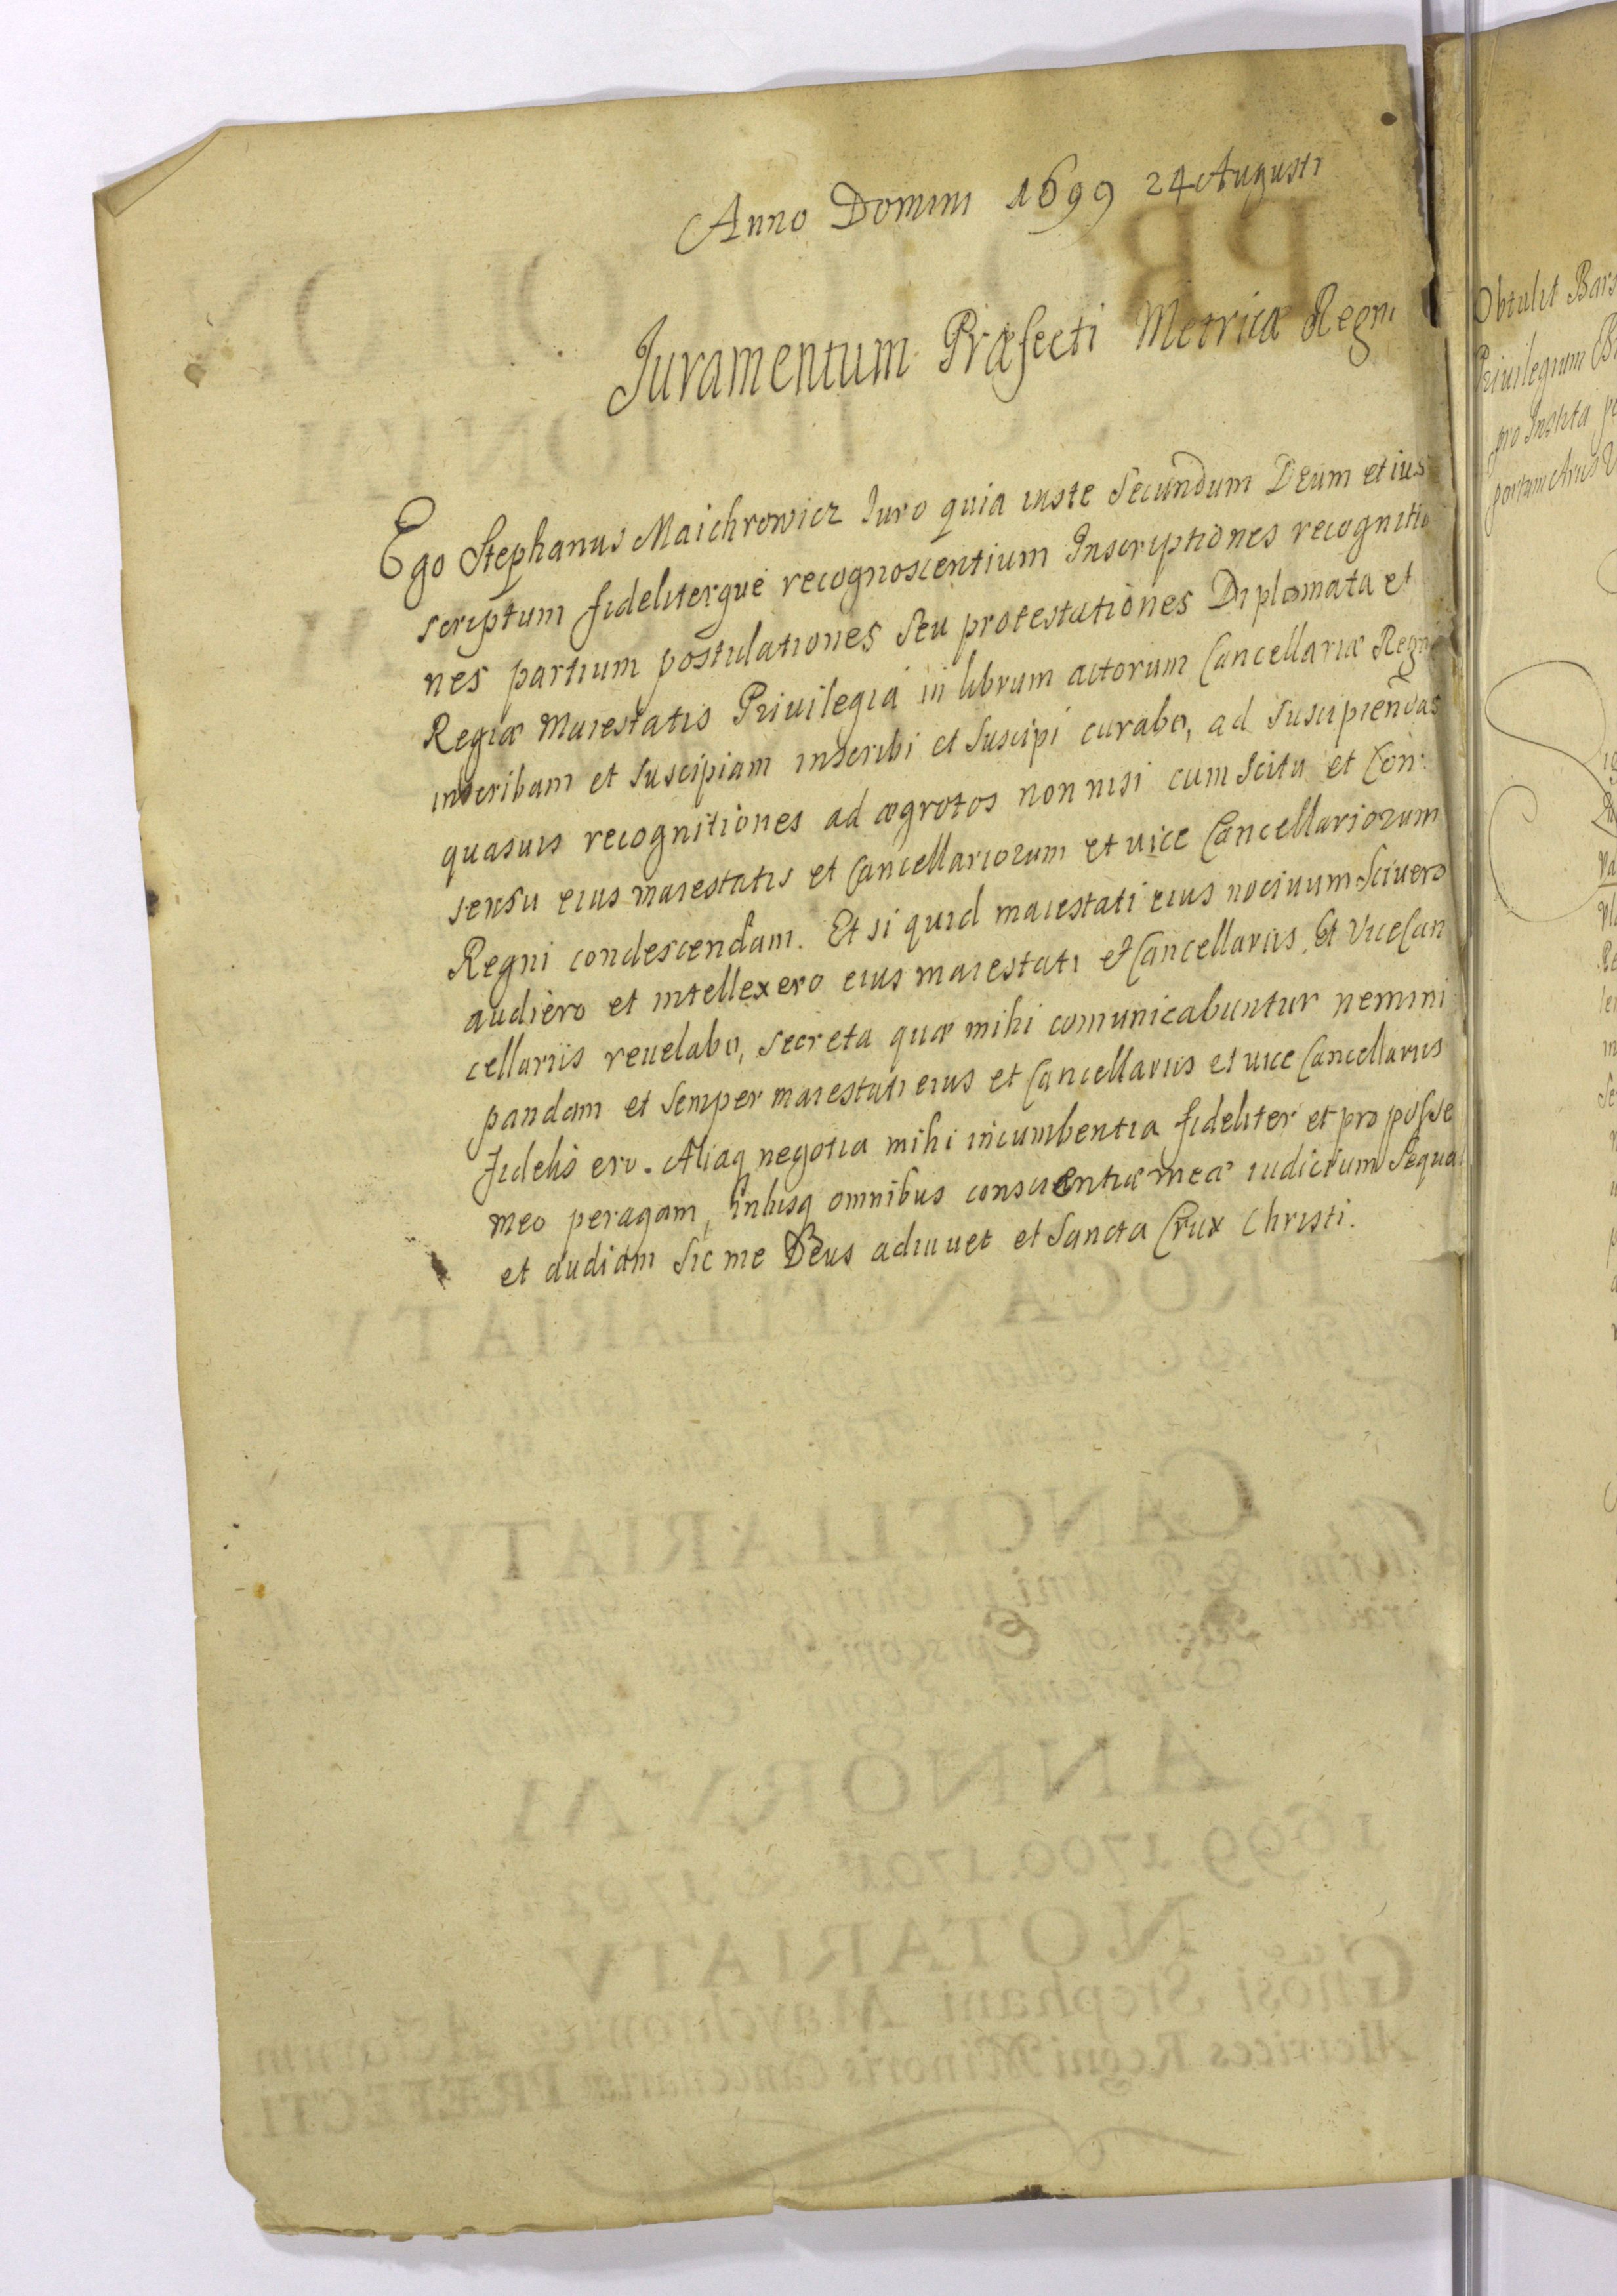 Anno Domini 1699 24 Augusti
Juramentum Præfecti Metricæ Regni
Ego Stephanus Maichrowicz Juro quia iuste Secundum Deum et ius
scriptum fideliterque recognoscentium Inscriptiones recognitio
nes partium postulationes Seu protestationes Diplomata et
Regiæ Maiestatis Priuilegia in librum actorum Cancellariæ Regni
inscribam et Suscipiam inscribi et Suscipi curabo, ad Suscipiendas
quasuis recognitiones ad ægrotos non nisi cum Scitu et Con
sensu eius maiestatis et Cancellariorum et uice Cancellariorum
Regni condescendam. Et si quid maiestati eius nociuum Sciuero
audiero et intellexero eius maiestati et Cancellariis Et ViceCan
cellariis reuelabo, Secreta quæ mihi comunicabuntur nemini
pandam et Semper maiestati eius et Cancellariis et uice Cancellariis
fidelis ero. Aliaq negotia mihi incumbentia fideliter et pro posse
meo peragam, Inhisq omnibus conscientiæ meæ iudicium Sequar
et audiam Sic me Deus adiuuet et Sancta Crux Christi.
Obtulit
Priuilegium
pro